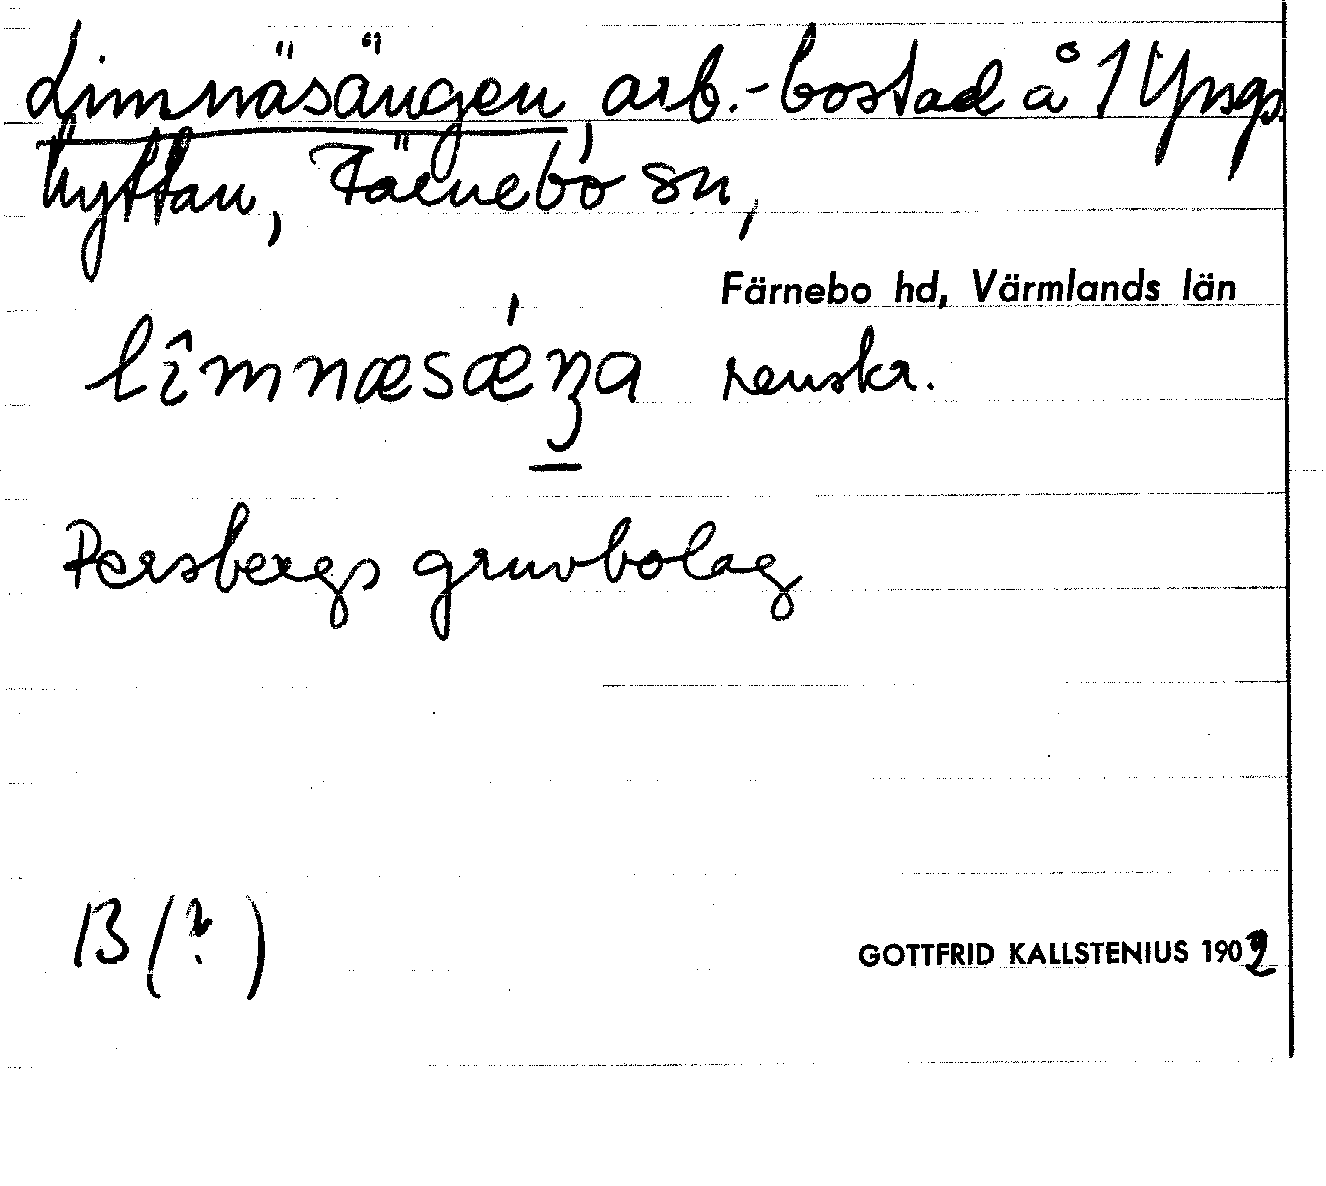 Limnäsängen, arb.-bostad å 1 Yngs-
hyttan, Färnebo sn,
Färnebo hd, Värmlands län
lîmnæsǽŋa renskr.
Persbergs gruvbolag
B (?)
GOTTFRID KALLSTENIUS 1902